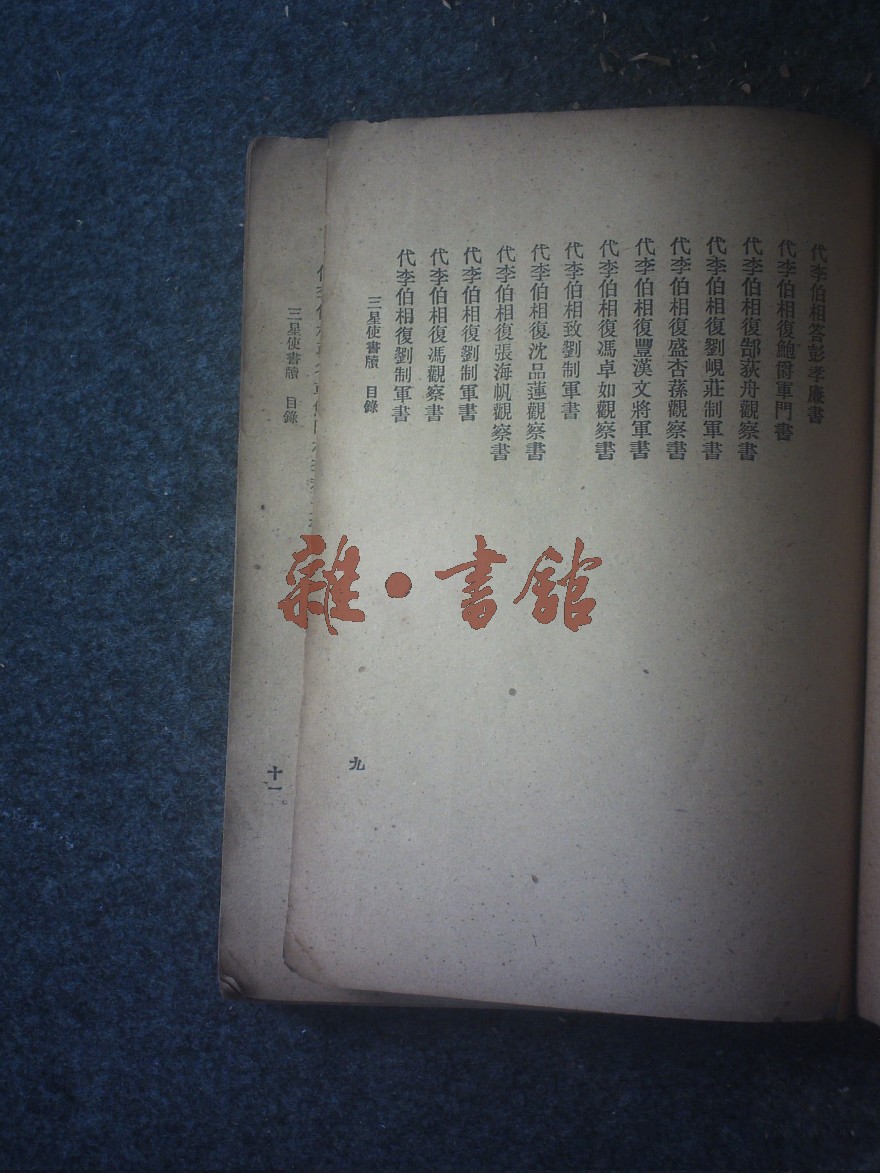 代李伯相答彭孝廉書
代李伯相復鮑爵軍門書
代李伯相復郜荻舟觀察書
代李伯相復劉峴莊制軍書
代李伯相復盛杏蓀觀察書
代李伯相復豐漢文將軍書
代李伯相復馮卓如觀察書
代李伯相致劉制軍書
代李伯相復沈品蓮觀察書
代李伯相復張海帆觀察書
代李伯相復劉制軍書
代李伯相復馮觀察書
代李伯相復劉制軍書
三星使書牘 目錄
九
三星使書牘 目錄
十一
雜·書館